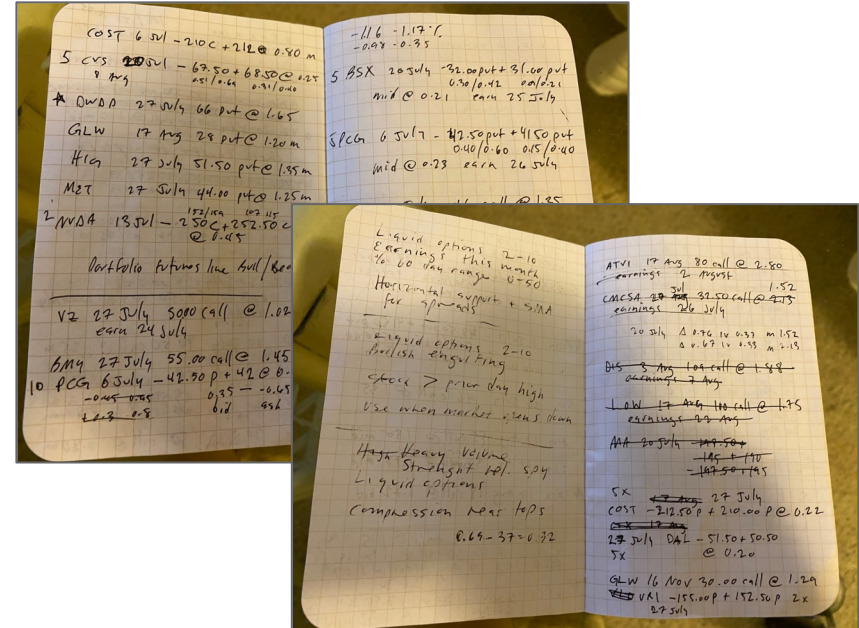 COST 6 Jul -210C +212 @ 0.80 m
5 CVS 20 Jul -67.50 + 68.50 @ 0.25
8 Aug
DWDP 27 July 66 put @ 1.65
GLW 17 Aug 28 put @ 1.20 m
HIG 27 July 51.50 put @ 1.35 m
MET 27 July 44.00 put @ 1.25 m
2 NVDA 13 Jul - 250 C + 252.50 C
@ 0.45
Portfolio futures line Bull/Bea
VZ 27 July 5000 call @ 1.02
earn 24 July
BMY 27 July 55.00 call @ 1.45
10 PCG 6 July -42.50 p + 42 @ 0.
0.35 - -0.65
bid ask
-1.16 -1.17%
-0.98 -0.35
5 BSX 20 July -32.00 put + 31.00 put
0.30/0.42
mid @ 0.21 earn 25 July
5 PCG 6 July - 42.50 put + 41.50 put
0.40/0.60 0.15/0.40
mid @ 0.23 earn 26 July
Liquid options 2-10
Earnings this month
% 60 day range 0-50
Horizontal support + SMA
for spreads
Liquid options 2-10
Bullish engulfing
stock > prior day high
Use when market opens down
High Heavy Volume
Strenght rel. spy
Liquid options
Compression near tops
0.69 - 37 = 0.32
ATVI 17 Aug 80 call @ 2.80
earnings 2 August
Jul 1.52
CMCSA 27 32.50 call @ 2.13
earnings 26 July
20 July Δ 0.76 IV 0.33 m 1.52
Δ 0.67 IV 0.33 m 2.13
DIS 3 Aug 109 call @ 1.88
earnings 7 Aug
LOW 17 Aug 100 call @ 1.75
earnings 22 Aug
20 July
195 + 190
-197.50 + 195
5x 17 Aug 27 July
COST -212.50 P + 210.00 P @ 0.22
27 July DAL -51.50 + 50.50
5x @ 0.20
GLW 16 Nov 30.00 call @ 1.29
URI -155.00 P + 152.50 P 2x
27 July